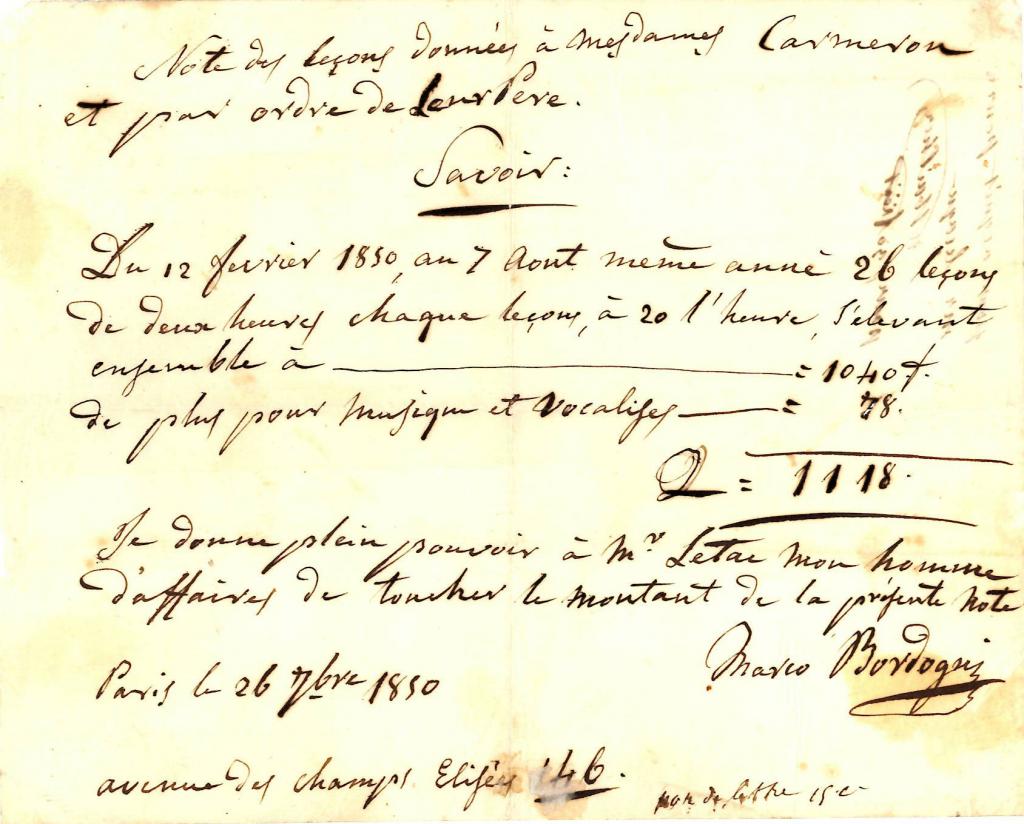 Note des leçons données à Mesdames Carmeron
et par ordre de Leur Pere.
Savoir:
Du 12 fevrier 1850, au 7 Aout même anné 26 leçons
de deux heures chaque leçons, à 20 l'heure, S'elevant
ensemble à = 1040 f.
de plus pour Musique et Vocalises = 78.
= 1118.
Je donne plein pouvoir à Mr Letac mon homme
d'affaires de toucher le montant de la présente Note
Marco Bordogni
Paris le 26 7bre 1850
avenue des champs Elisées 46.
por de lettre 15 c